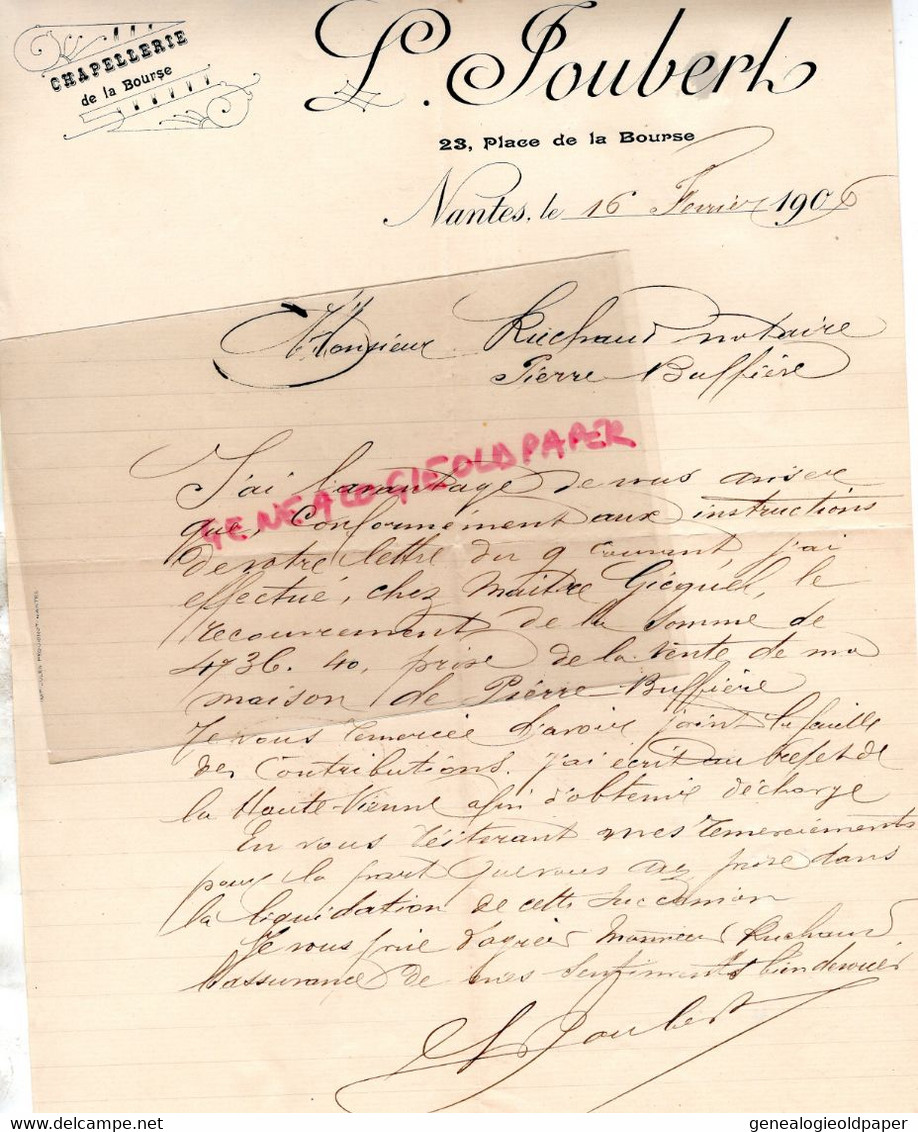 CHAPELLERIE
de la Bourse
L. Joubert
23, Place de la Bourse
Nantes, le 16 Fevrier 1906
Monsieur Ruchaud notaire
Pierre Buffière
GENEALOGIEOLDPAPER
J'ai l'avantage de vous aviser
que, conformément aux instructions
de votre lettre du 9 courant j'ai
effectué, chez Maitre Gicquel, le
recouvrement de la somme de
4736.40, prix de la vente de ma
maison de Pierre-Buffière
Je vous remercie d'avoir joint la feuille
des contributions. j'ai écrit au prefet de
la Haute Vienne afin d'obtenir décharge
En vous réiterant mes remerciements
pour la part que vous avez prise dans
la liquidation de cette succession
Je vous prie d'agréer Monsieur Ruchaud
l'assurance de mes sentiments
L Joubert
genealogieoldpaper